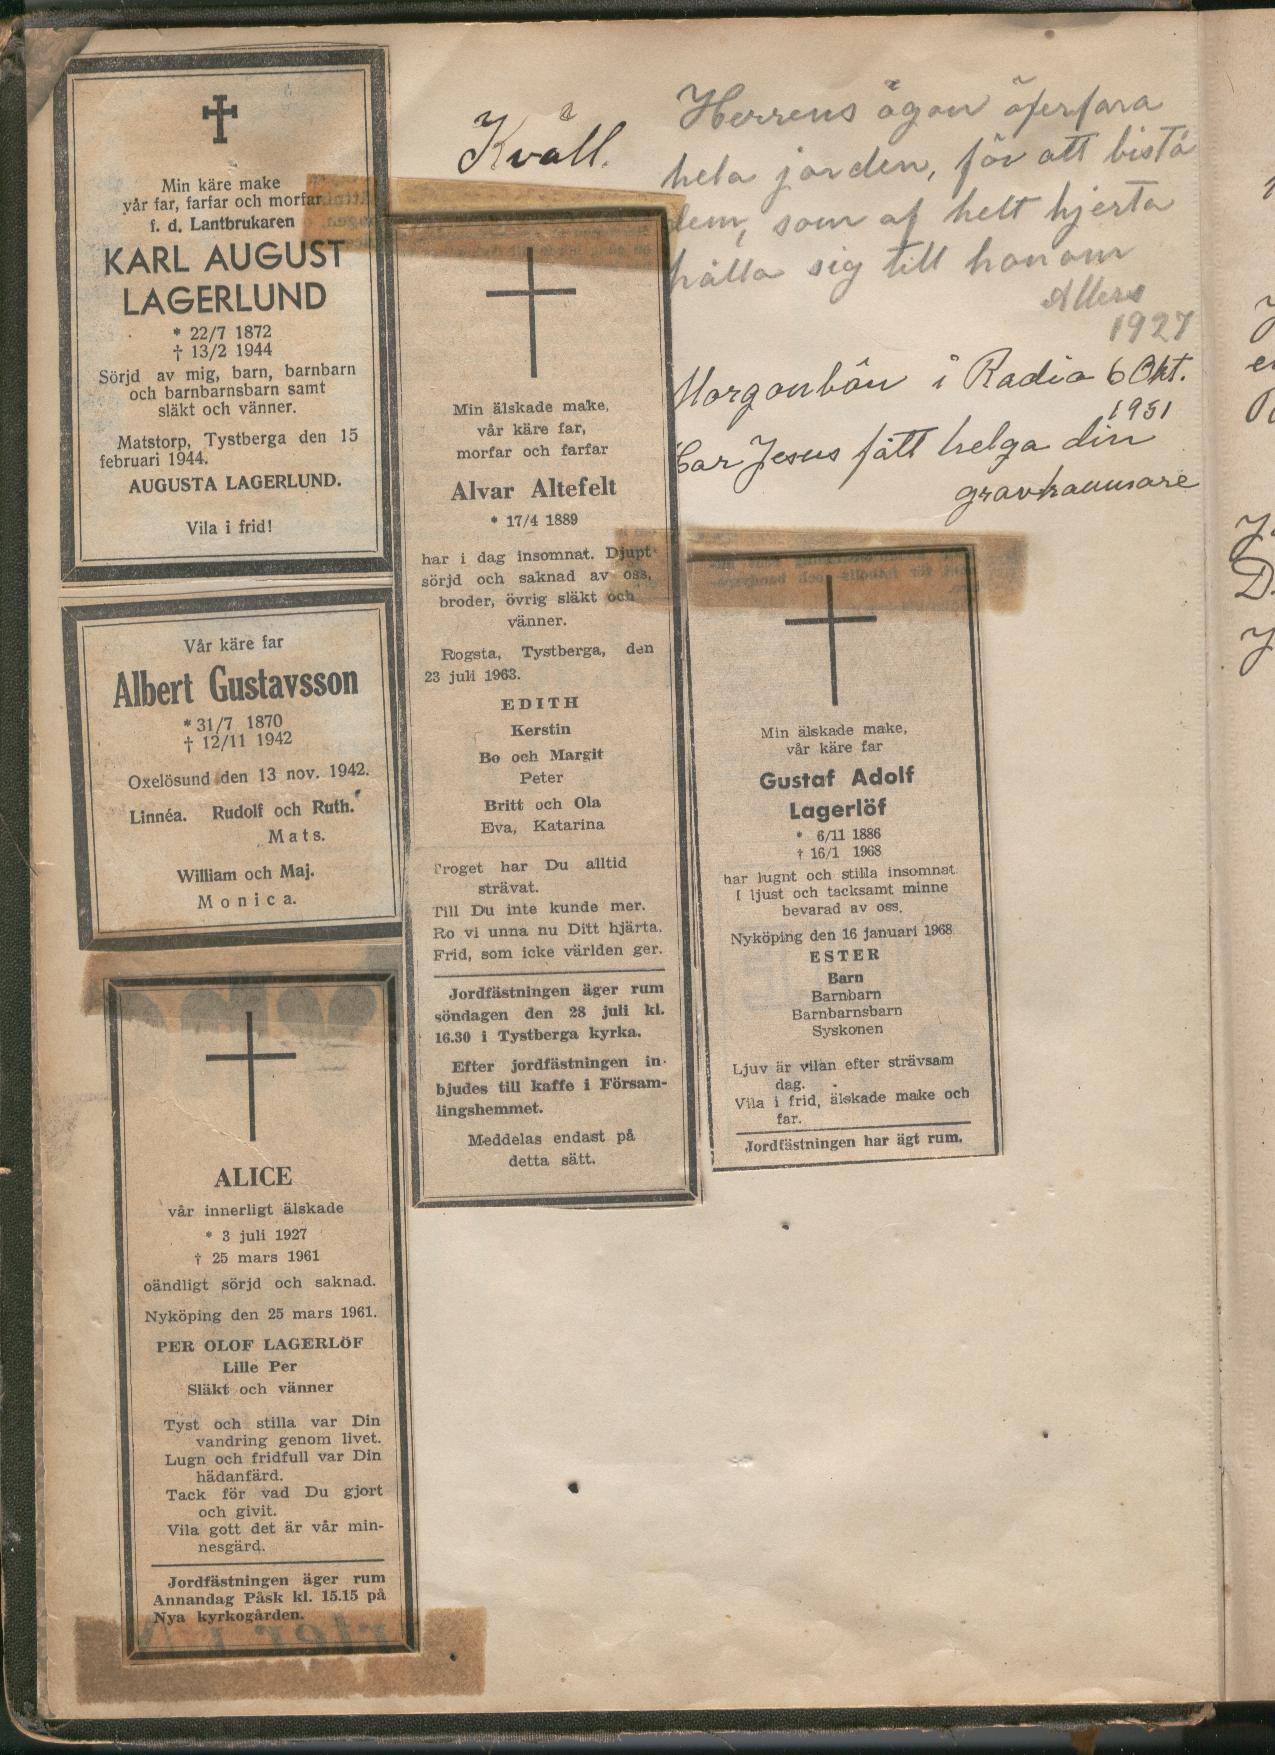 Min käre make
vår far, farfar och morfar
f. d. Lantbrukaren
KARL AUGUST
LAGERLUND
* 22/7 1872
† 13/2 1944
Sörjd av mig, barn, barnbarn
och barnbarnsbarn samt
släkt och vänner.
Matstorp, Tystberga den 15
februari 1944.
AUGUSTA LAGERLUND.
Vila i frid!
Vår käre far
Albert Gustavsson
* 31/7 1870
† 12/11 1942
Oxelösund den 13 nov. 1942.
Linnéa. Rudolf och Ruth.
Mats.
William och Maj.
Monica.
ALICE
vår innerligt älskade
* 3 juli 1927
† 25 mars 1961
oändligt sörjd och saknad.
Nyköping den 25 mars 1961.
PER OLOF LAGERLÖF
Lille Per
Släkt och vänner
Tyst och stilla var Din
vandring genom livet.
Lugn och fridfull var Din
hädanfärd.
Tack för vad Du gjort
och givit.
Vila gott det är vår min-
nesgärd.
Jordfästningen äger rum
Annandag Påsk kl. 15.15 på
Nya kyrkogården.
Kväll.
Min älskade make,
vår käre far,
morfar och farfar
Alvar Altefelt
* 17/4 1889
har i dag insomnat. Djupt
sörjd och saknad av oss,
broder, övrig släkt och
vänner.
Rogsta, Tystberga, den
23 juli 1963.
EDITH
Kerstin
Bo och Margit
Peter
Britt och Ola
Eva, Katarina
Troget har Du alltid
strävat.
Till Du inte kunde mer.
Ro vi unna nu Ditt hjärta.
Frid, som icke världen ger.
Jordfästningen äger rum
söndagen den 28 juli kl.
16.30 i Tystberga kyrka.
Efter jordfästningen in-
bjudes till kaffe i Försam-
lingshemmet.
Meddelas endast på
detta sätt.
Herrens ögon öferfara
hela jorden, för att bistå
dem, som af helt hjerta
hålla sig till honom
Allers
1927
Morgonbön i Radio 6 Okt.
1951
Har Jesus fått helga din
gravkammare
Min älskade make,
vår käre far
Gustaf Adolf
Lagerlöf
* 6/11 1886
† 16/1 1968
har lugnt och stilla insomnat.
I ljust och tacksamt minne
bevarad av oss.
Nyköping den 16 januari 1968
ESTER
Barn
Barnbarn
Barnbarnsbarn
Syskonen
Ljuv är vilan efter strävsam
dag.
Vila i frid, älskade make och
far.
Jordfästningen har ägt rum.